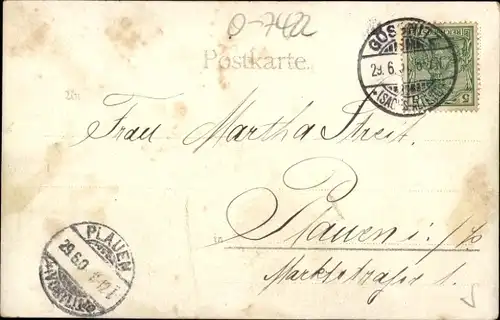 O-7422
Postkarte.
GÖSSNITZ
29.6.0
Frau Martha Streit.
in
Plauen i./V.
Marktstraße 1
PLAUEN
29.6.0
(VOGTLAND)
5